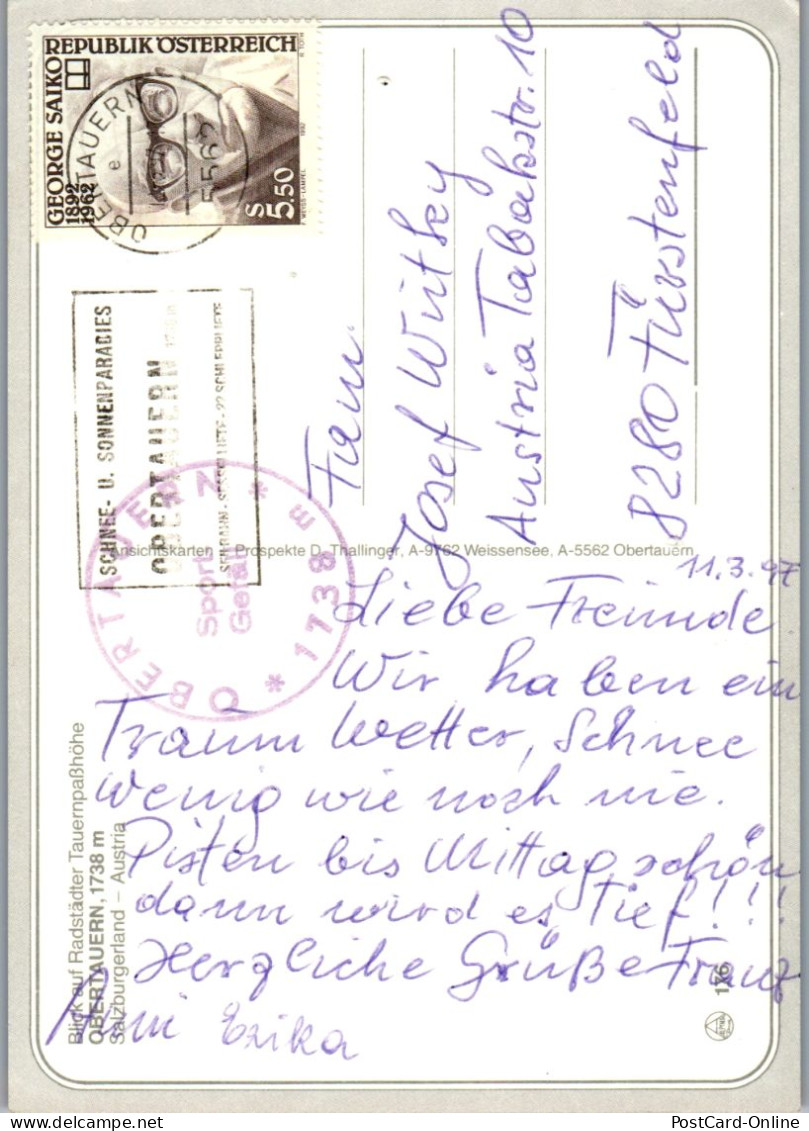 REPUBLIK ÖSTERREICH
GEORGE SAIKO
1892
1962
S 5.50
1992
OBERTAUERN
e
5562
SCHNEE- U. SONNENPARADIES
OBERTAUERN
OBERTAUERN * 1738 m *
Sport
Fam.
Josef Wutky
Austria Tabakstr. 10
8280 Fürstenfeld
Ansichtskarten u. Prospekte D. Thallinger, A-9762 Weissensee, A-5562 Obertauern
11.3.97
Liebe Freunde
Wir haben ein
Traum Wetter, Schnee
wenig wie noch nie.
Pisten bis Mittag schön
dann wird es Tief!!!
Herzliche Grüße Franz
Anni Erika
Blick auf Radstädter Tauernpaßhöhe
OBERTAUERN, 1738 m
Salzburgerland – Austria
176
PostCard-Online
PostCard-Online